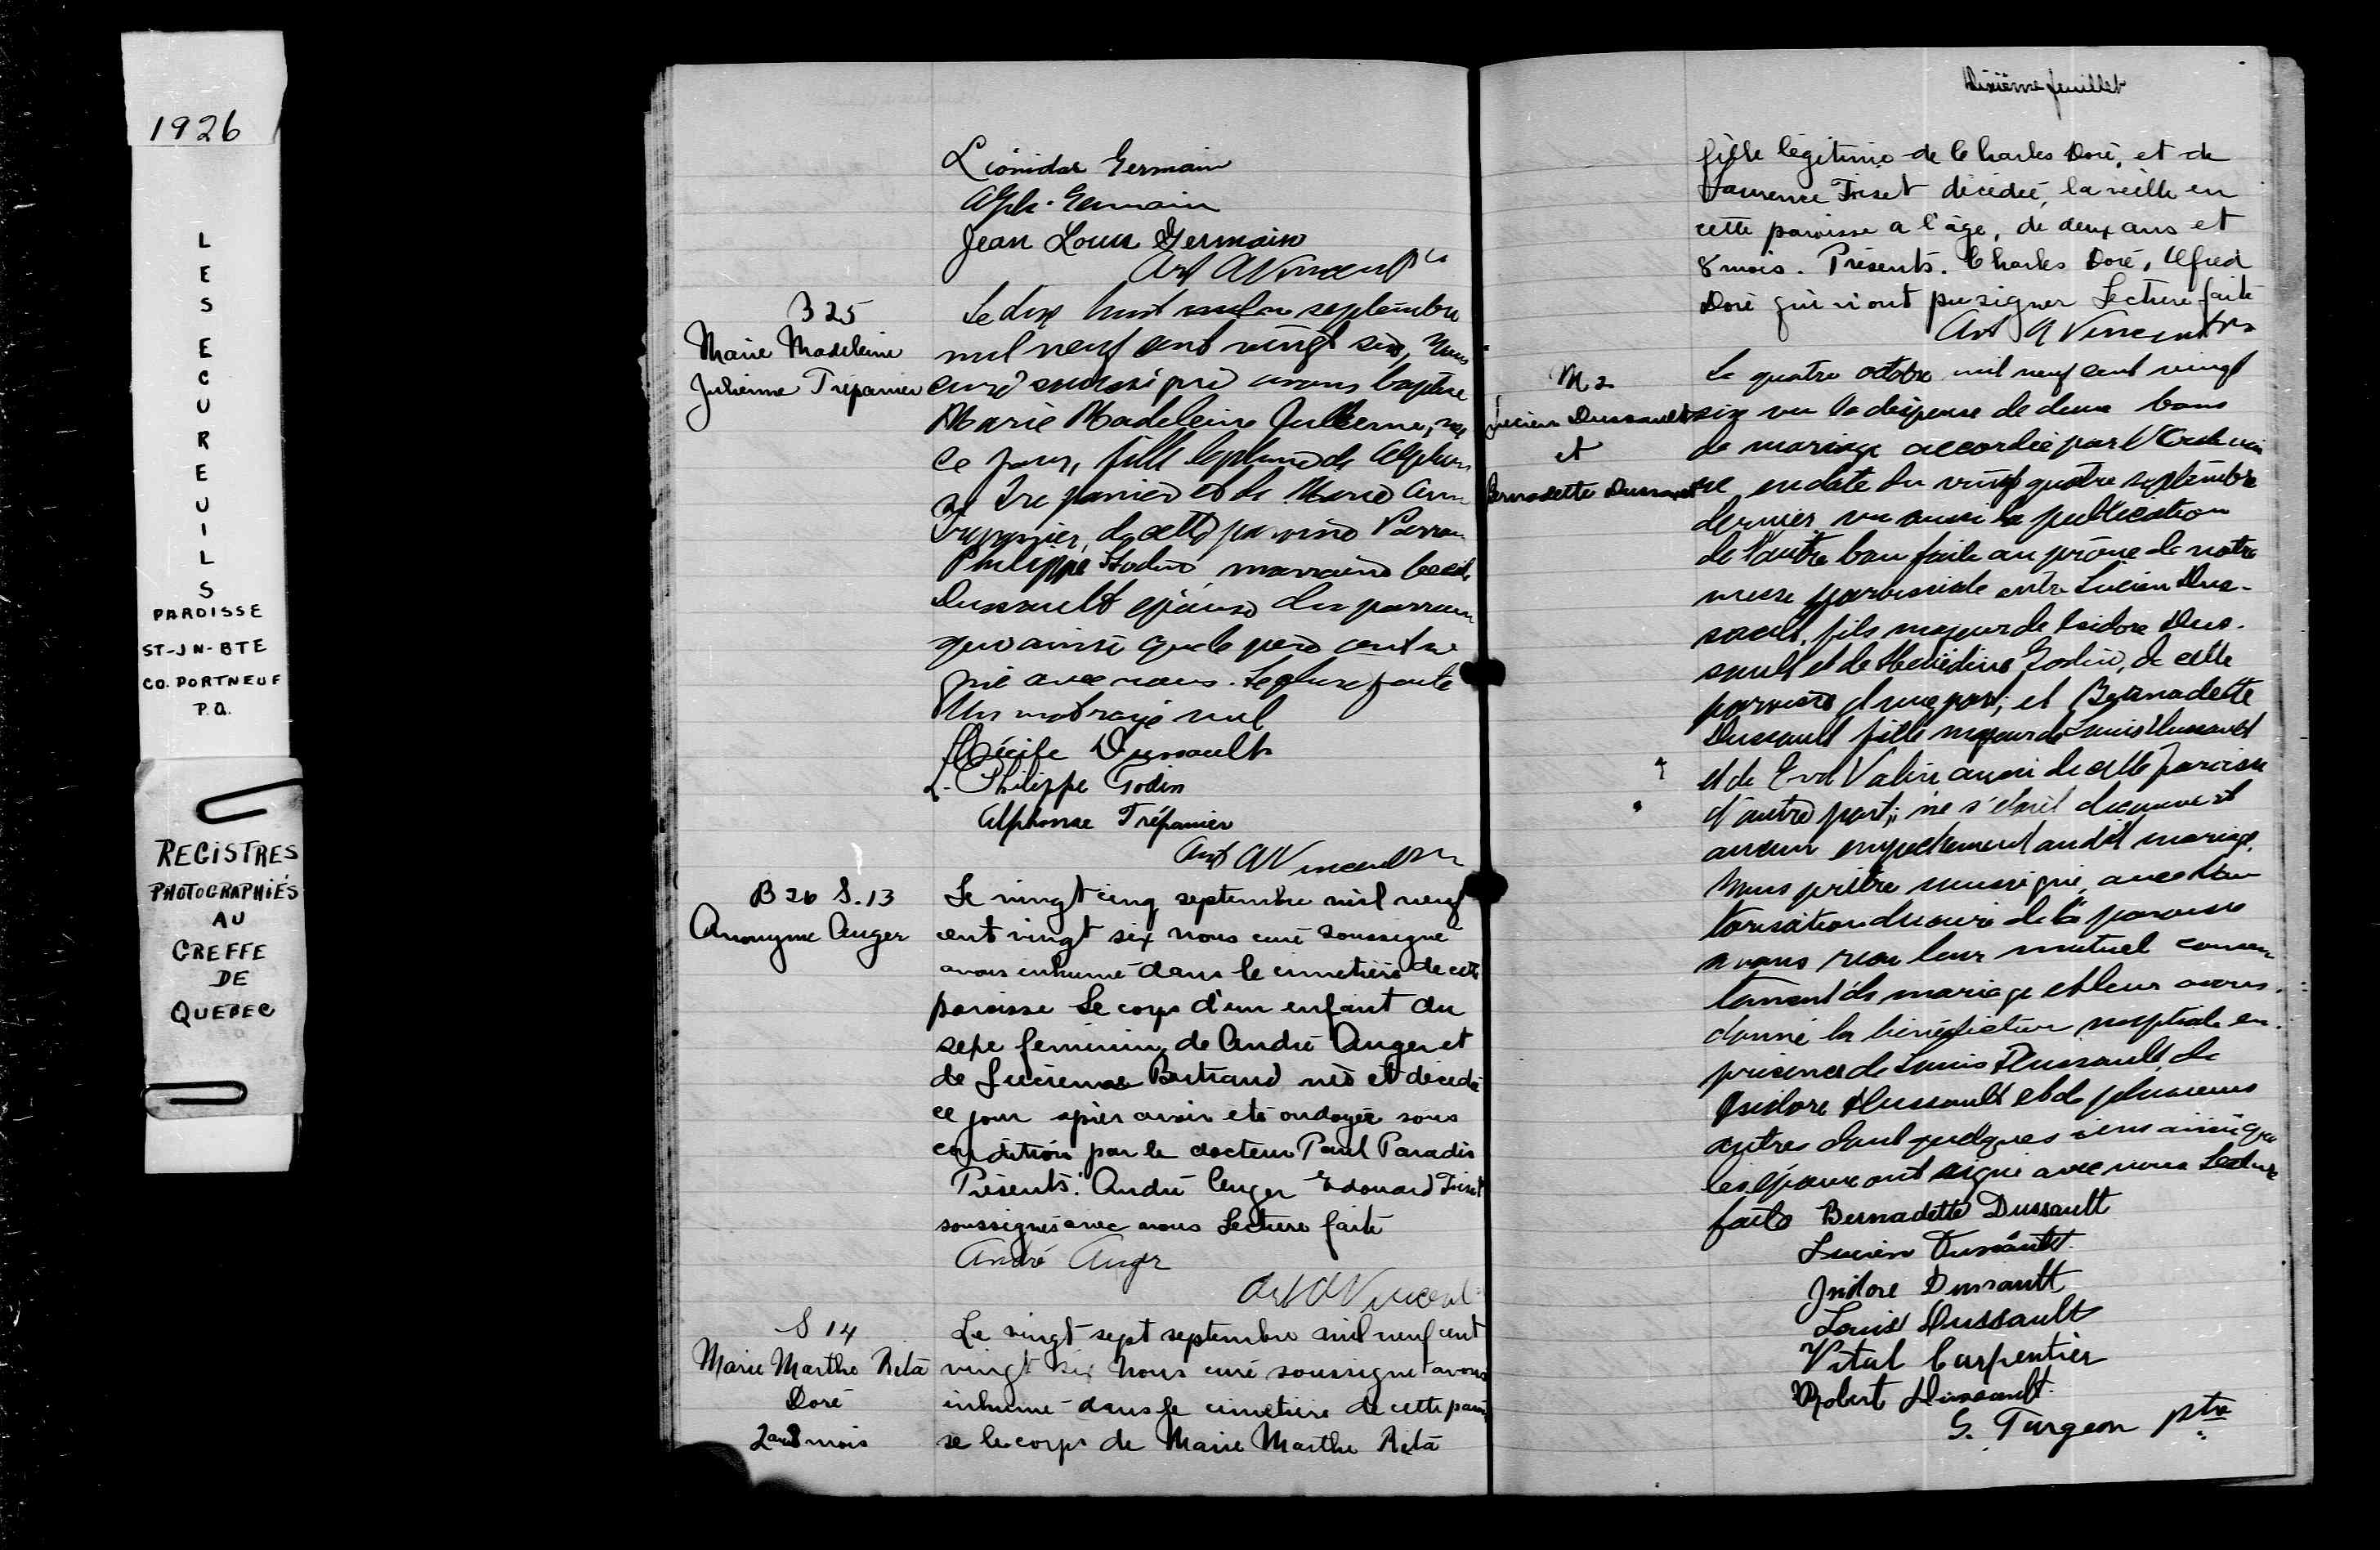 1926
LES ECUREUILS
PAROISSE
ST-JN-BTE
CO. PORTNEUF
P.Q.
REGISTRES
PHOTOGRAPHIÉS
AU
GREFFE
DE
QUEBEC
Léonidas Germain
Alph. Germain
Jean Louis Germain
Art A Vincent Ptr
B 25
Marie Madeleine
Julienne Trépanier
Le dix huit septembre
mil neuf cent vingt six, nous
curé soussigné avons baptisé
Marie Madeleine Julienne, née
ce jour, fille légitime de Alphon
se Trepanier et de Marie
Trepanier, de cette paroisse Parrain
Philippe Godin marraine Cécile
Dussault épouse du parrain
qui ainsi que le père ont si
gné avec nous. Lecture faite
Un mot rayé nul
Cécile Dussault
L. Philippe Godin
Alphonse Trépanier
Art A Vincent Ptr
B 26 S. 13
Anonyme Auger
Le vingt cinq septembre mil neuf
cent vingt six nous curé soussigné
avons inhumé dans le cimetière de cette
paroisse le corps d'un enfant du
sexe feminin, de André Auger et
de Lucienne Bertrand née et décédé
ce jour après avoir été ondoyée sous
condition par le docteur Paul Paradis
Présents: André Auger Edouard Triset
soussignés avec nous Lecture faite
André Auger
Art A Vincent
S 14
Marie Marthe Rita
Doré
2 ans 8 mois
Le vingt sept septembre mil neuf cent
vingt six nous curé soussigné avons
inhumé dans le cimetière de cette parois
se le corps de Marie Marthe Rita
Dixième feuillet
fille légitime de Charles Doré, et de
Laurence Triset décédée, la veille en
cette paroisse a l'âge, de deux ans et
8 mois. Présents. Charles Doré, Alfred
Doré qui n'ont pu signer Lecture faite
Art A Vincent Ptr
M 2
Lucien Dussault
et
Bernadette Dussault
Le quatre octobre mil neuf cent vingt
six vu la dispense de deux bans
de mariage accordée par
en date du vingt quatre septembre
dernier, vu aussi la publication
de l'autre ban faite au prône de notre
messe paroissiale entre Lucien Dus-
sault, fils majeur de Isidore Dus-
sault et de Godin, de cette
paroisse d'une part; et Bernadette
Dussault fille majeur de Louis Dussault
et de Eva Valin aussi de cette paroisse
d'autre part; ne s'étant découvert
aucun empechement audit mariage,
Nous prêtre soussigné, avec l'au
torisation du curé de la paroisse
avons reçu leur mutuel consen
tement de mariage et leur avons
donné la bénédiction nuptiale en
présence de Louis Dussault, de
Isidore Dussault et de plusieurs
autres dont quelques uns ainsi que
les époux ont signé avec nous Lecture
faite Bernadette Dussault
Lucien Dussault
Isidore Dussault
Louis Dussault
Vital Carpentier
Robert Dussault
G. Turgeon ptre